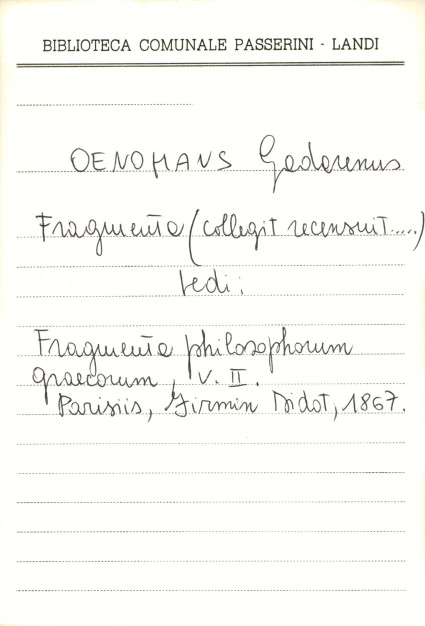 BIBLIOTECA COMUNALE PASSERINI - LANDI
OENOMAUS Gadarenus
Fragmenta (collegit recensuit.....)
Vedi:
Fragmenta philosophorum
graecorum, V. II.
Parisiis, Firmin Didot, 1867.